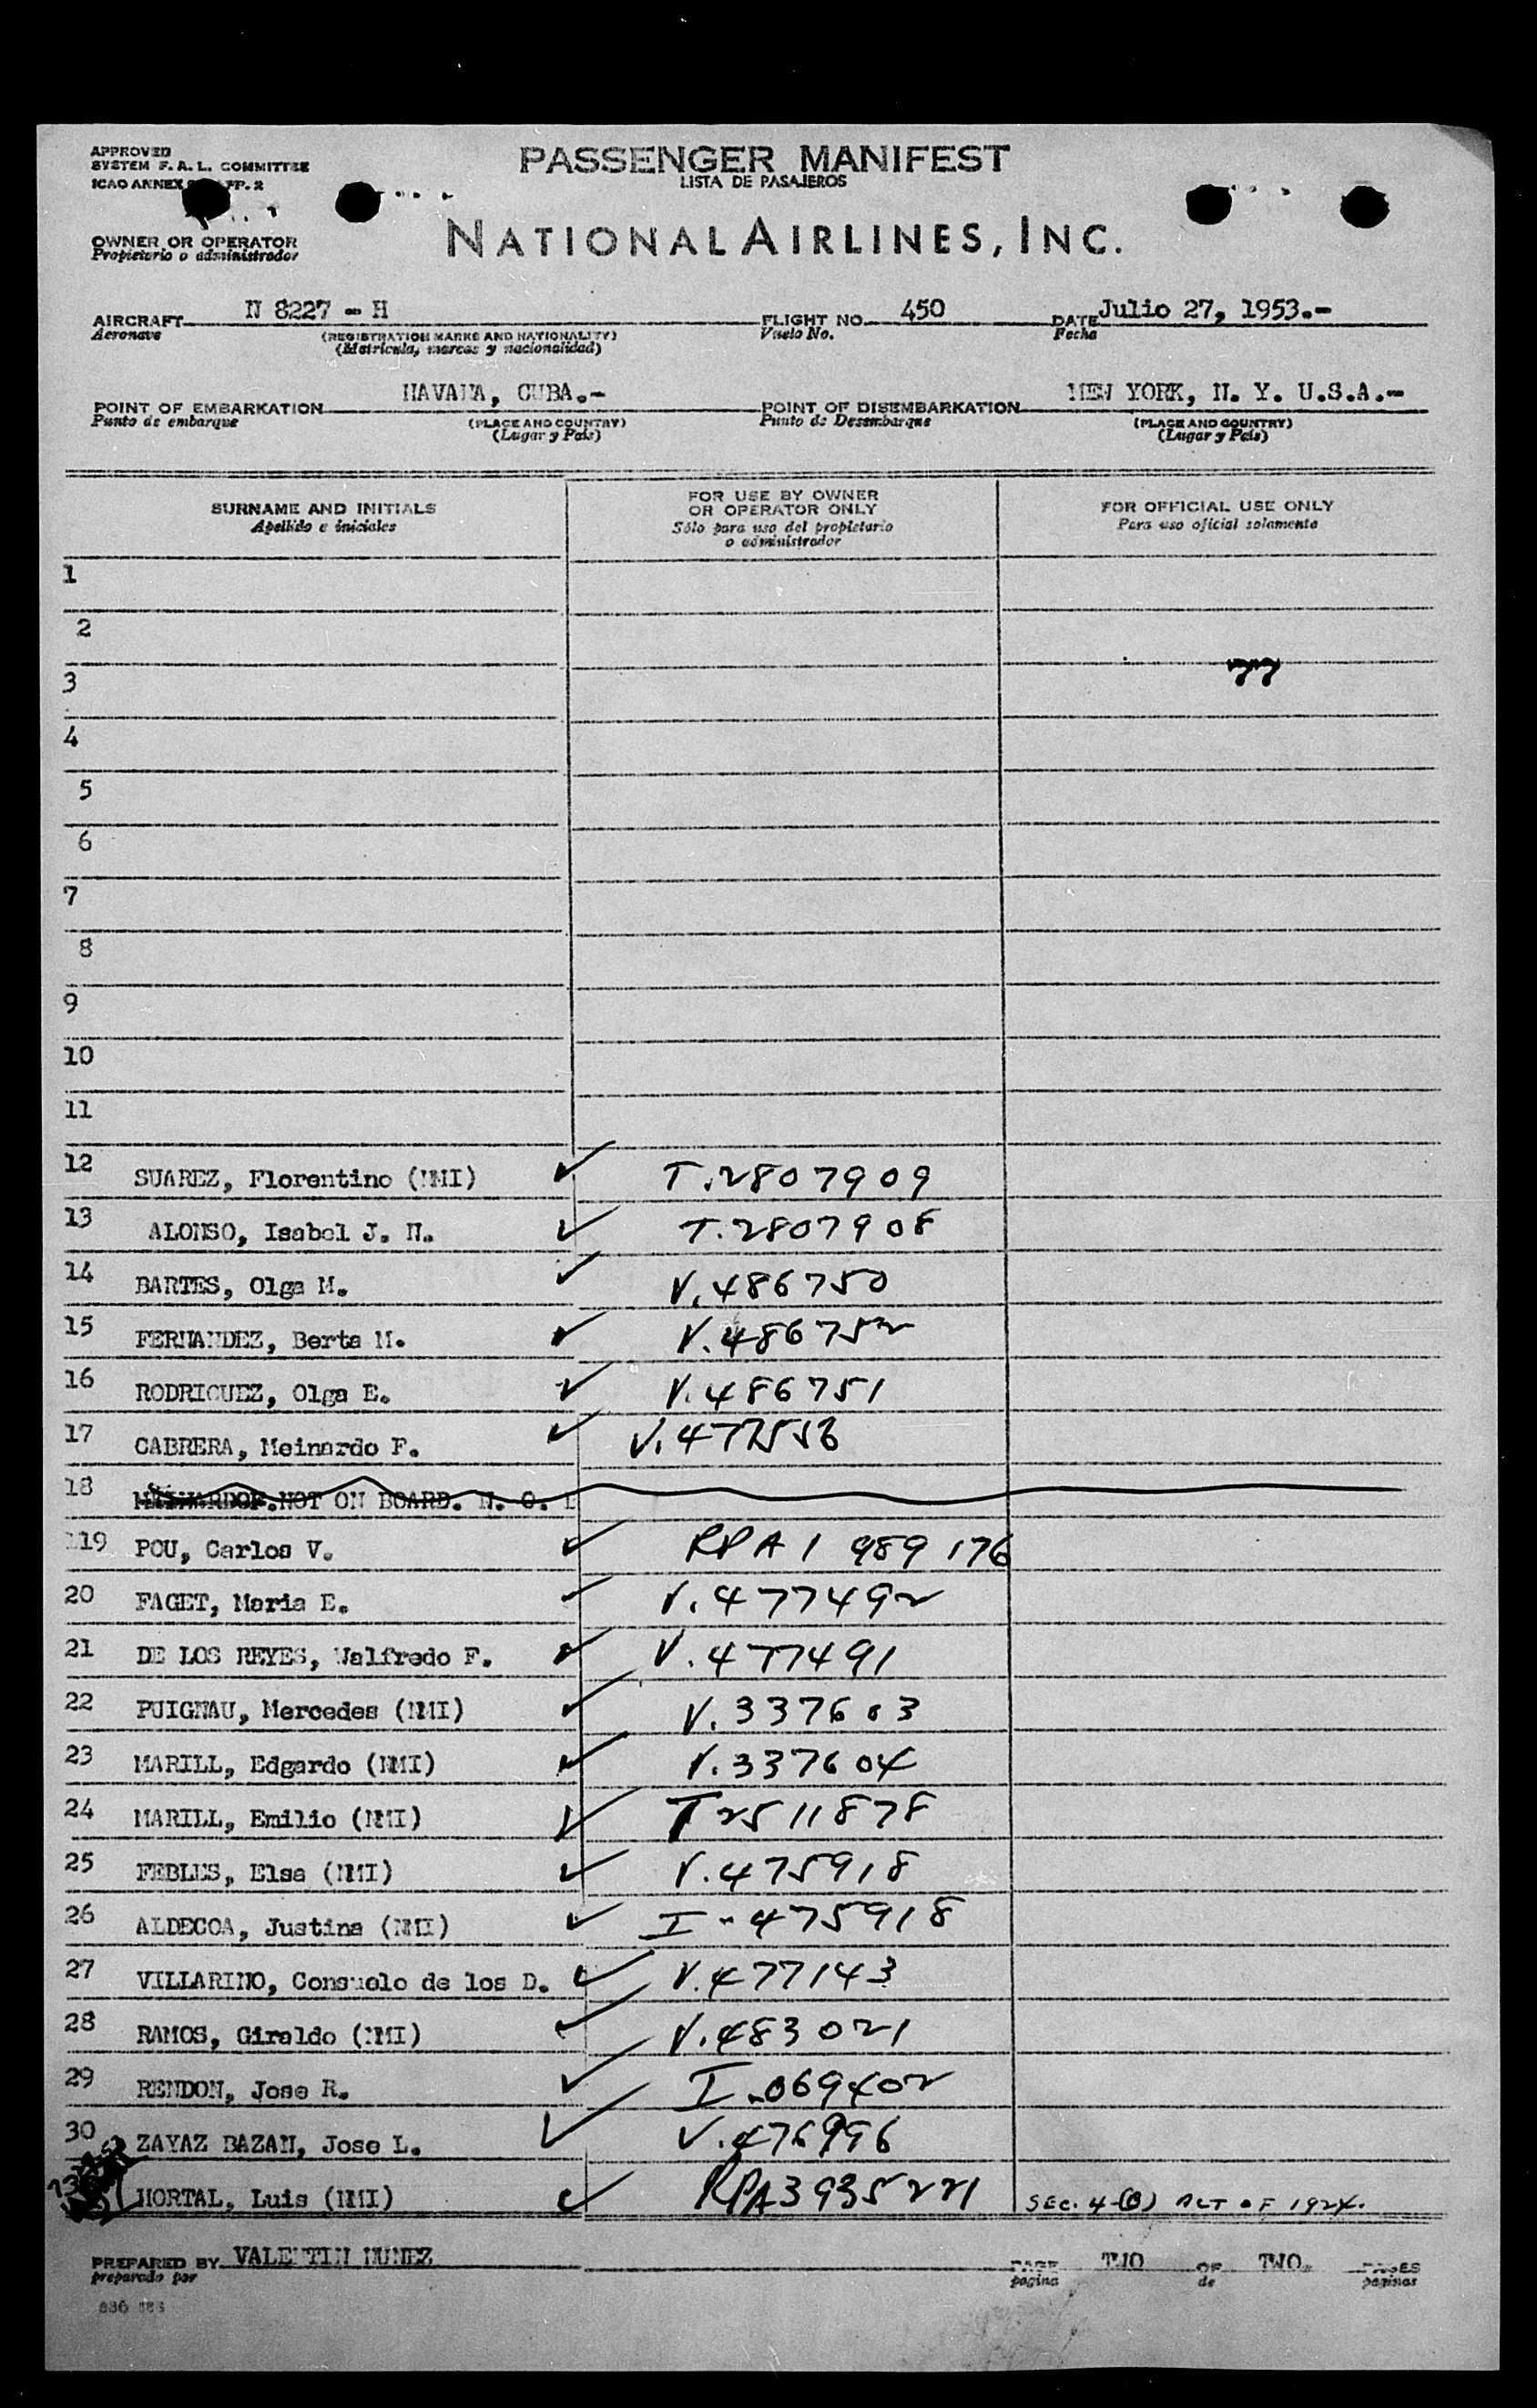 APPROVED
SYSTEM F. A. L. COMMITTEE
ICAO ANNEX PP. 2
PASSENGER MANIFEST
LISTA DE PASAJEROS
OWNER OR OPERATOR
Propietario o administrador
NATIONAL AIRLINES, INC.
AIRCRAFT N 8227 - H FLIGHT NO. 450 DATE Julio 27, 1953.-
Aeronave (REGISTRATION MARKS AND NATIONALITY) Vuelo No. Fecha
(Matricula, marcas y nacionalidad)
POINT OF EMBARKATION HAVANA, CUBA.- POINT OF DISEMBARKATION NEW YORK, N. Y. U.S.A.-
Punto de embarque (PLACE AND COUNTRY) Punto de Desembarque (PLACE AND COUNTRY)
(Lugar y País) (Lugar y País)
SURNAME AND INITIALS
Apellido e iniciales
FOR USE BY OWNER
OR OPERATOR ONLY
Sólo para uso del propietario
o administrador
FOR OFFICIAL USE ONLY
Para uso oficial solamente
1
2
3
4
5
6
7
8
9
10
11
12 SUAREZ, Florentino (NMI) ✓ T.2807909
13 ALONSO, Isabel J. N. ✓ T.2807908
14 BARTES, Olga M. ✓ V.486750
15 FERNANDEZ, Berta M. ✓ V.486752
16 RODRIGUEZ, Olga E. ✓ V.486751
17 CABRERA, Meinardo F. ✓
18 NOT ON BOARD. N. O.
19 POU, Carlos V. ✓ RPA 1 989 176
20 FAGET, Maria E. ✓ V.477492
21 DE LOS REYES, Walfredo F. ✓ V.477491
22 PUIGNAU, Mercedes (NMI) ✓ V.337603
23 MARILL, Edgardo (NMI) ✓ V.337604
24 MARILL, Emilio (NMI) ✓ T2511878
25 FEBLES, Elsa (NMI) ✓ V.475918
26 ALDECOA, Justina (NMI) ✓ I-475918
27 VILLARINO, Consuelo de los D. ✓ V.477143
28 RAMOS, Giraldo (NMI) ✓ V.483021
29 RENDON, Jose R. ✓ I-069402
30 ZAYAZ BAZAN, Jose L. ✓ V.476996
HORTAL, Luis (NMI) ✓ RPA3935221 SEC. 4-(B) ACT OF 1924.
PREPARED BY VALENTIN NUNEZ PAGE TWO OF TWO. PAGES
preparado por pagina de paginas